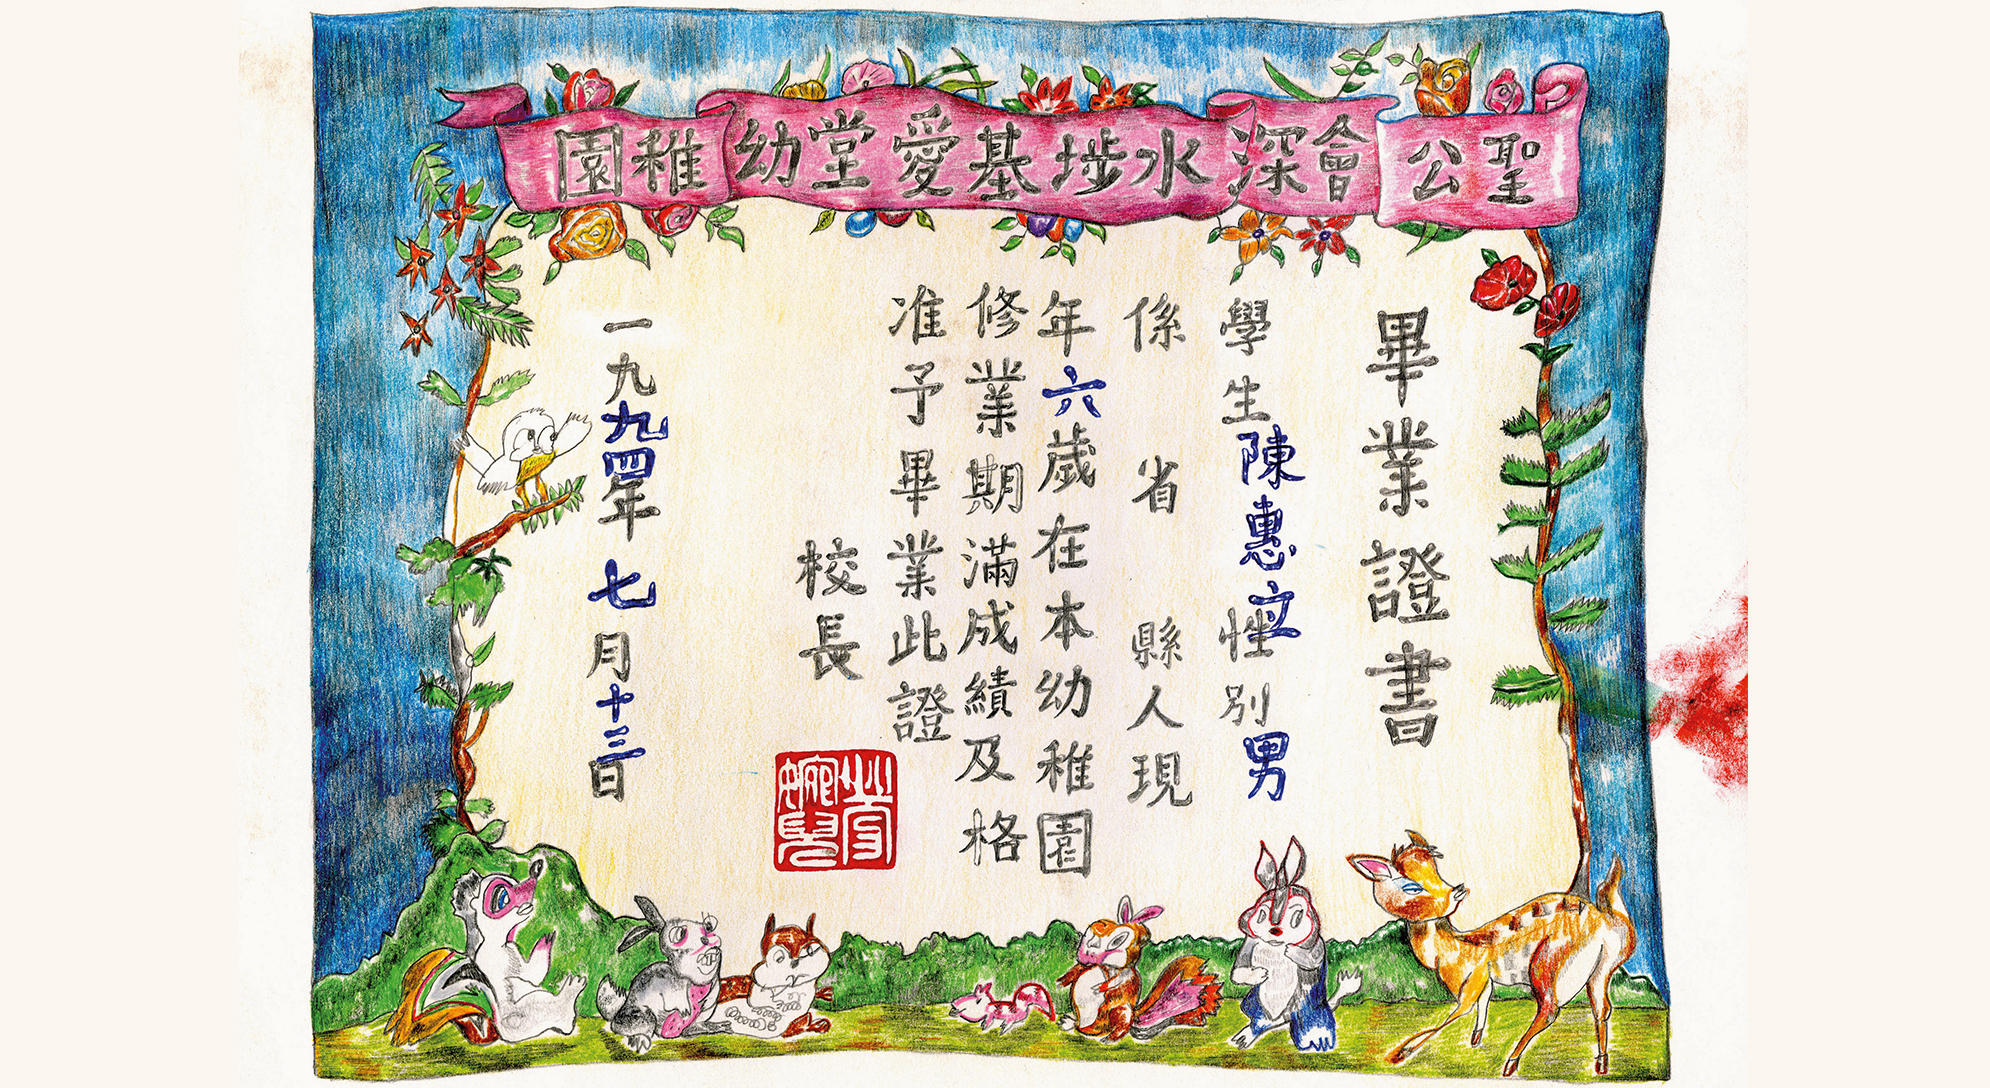 聖公會深水埗基愛堂幼稚園
畢業證書
學生陳惠立性別男
係 省 縣人現
年六歲在本幼稚園
修業期滿成績及格
准予畢業此證
校長
一九九四年七月十三日